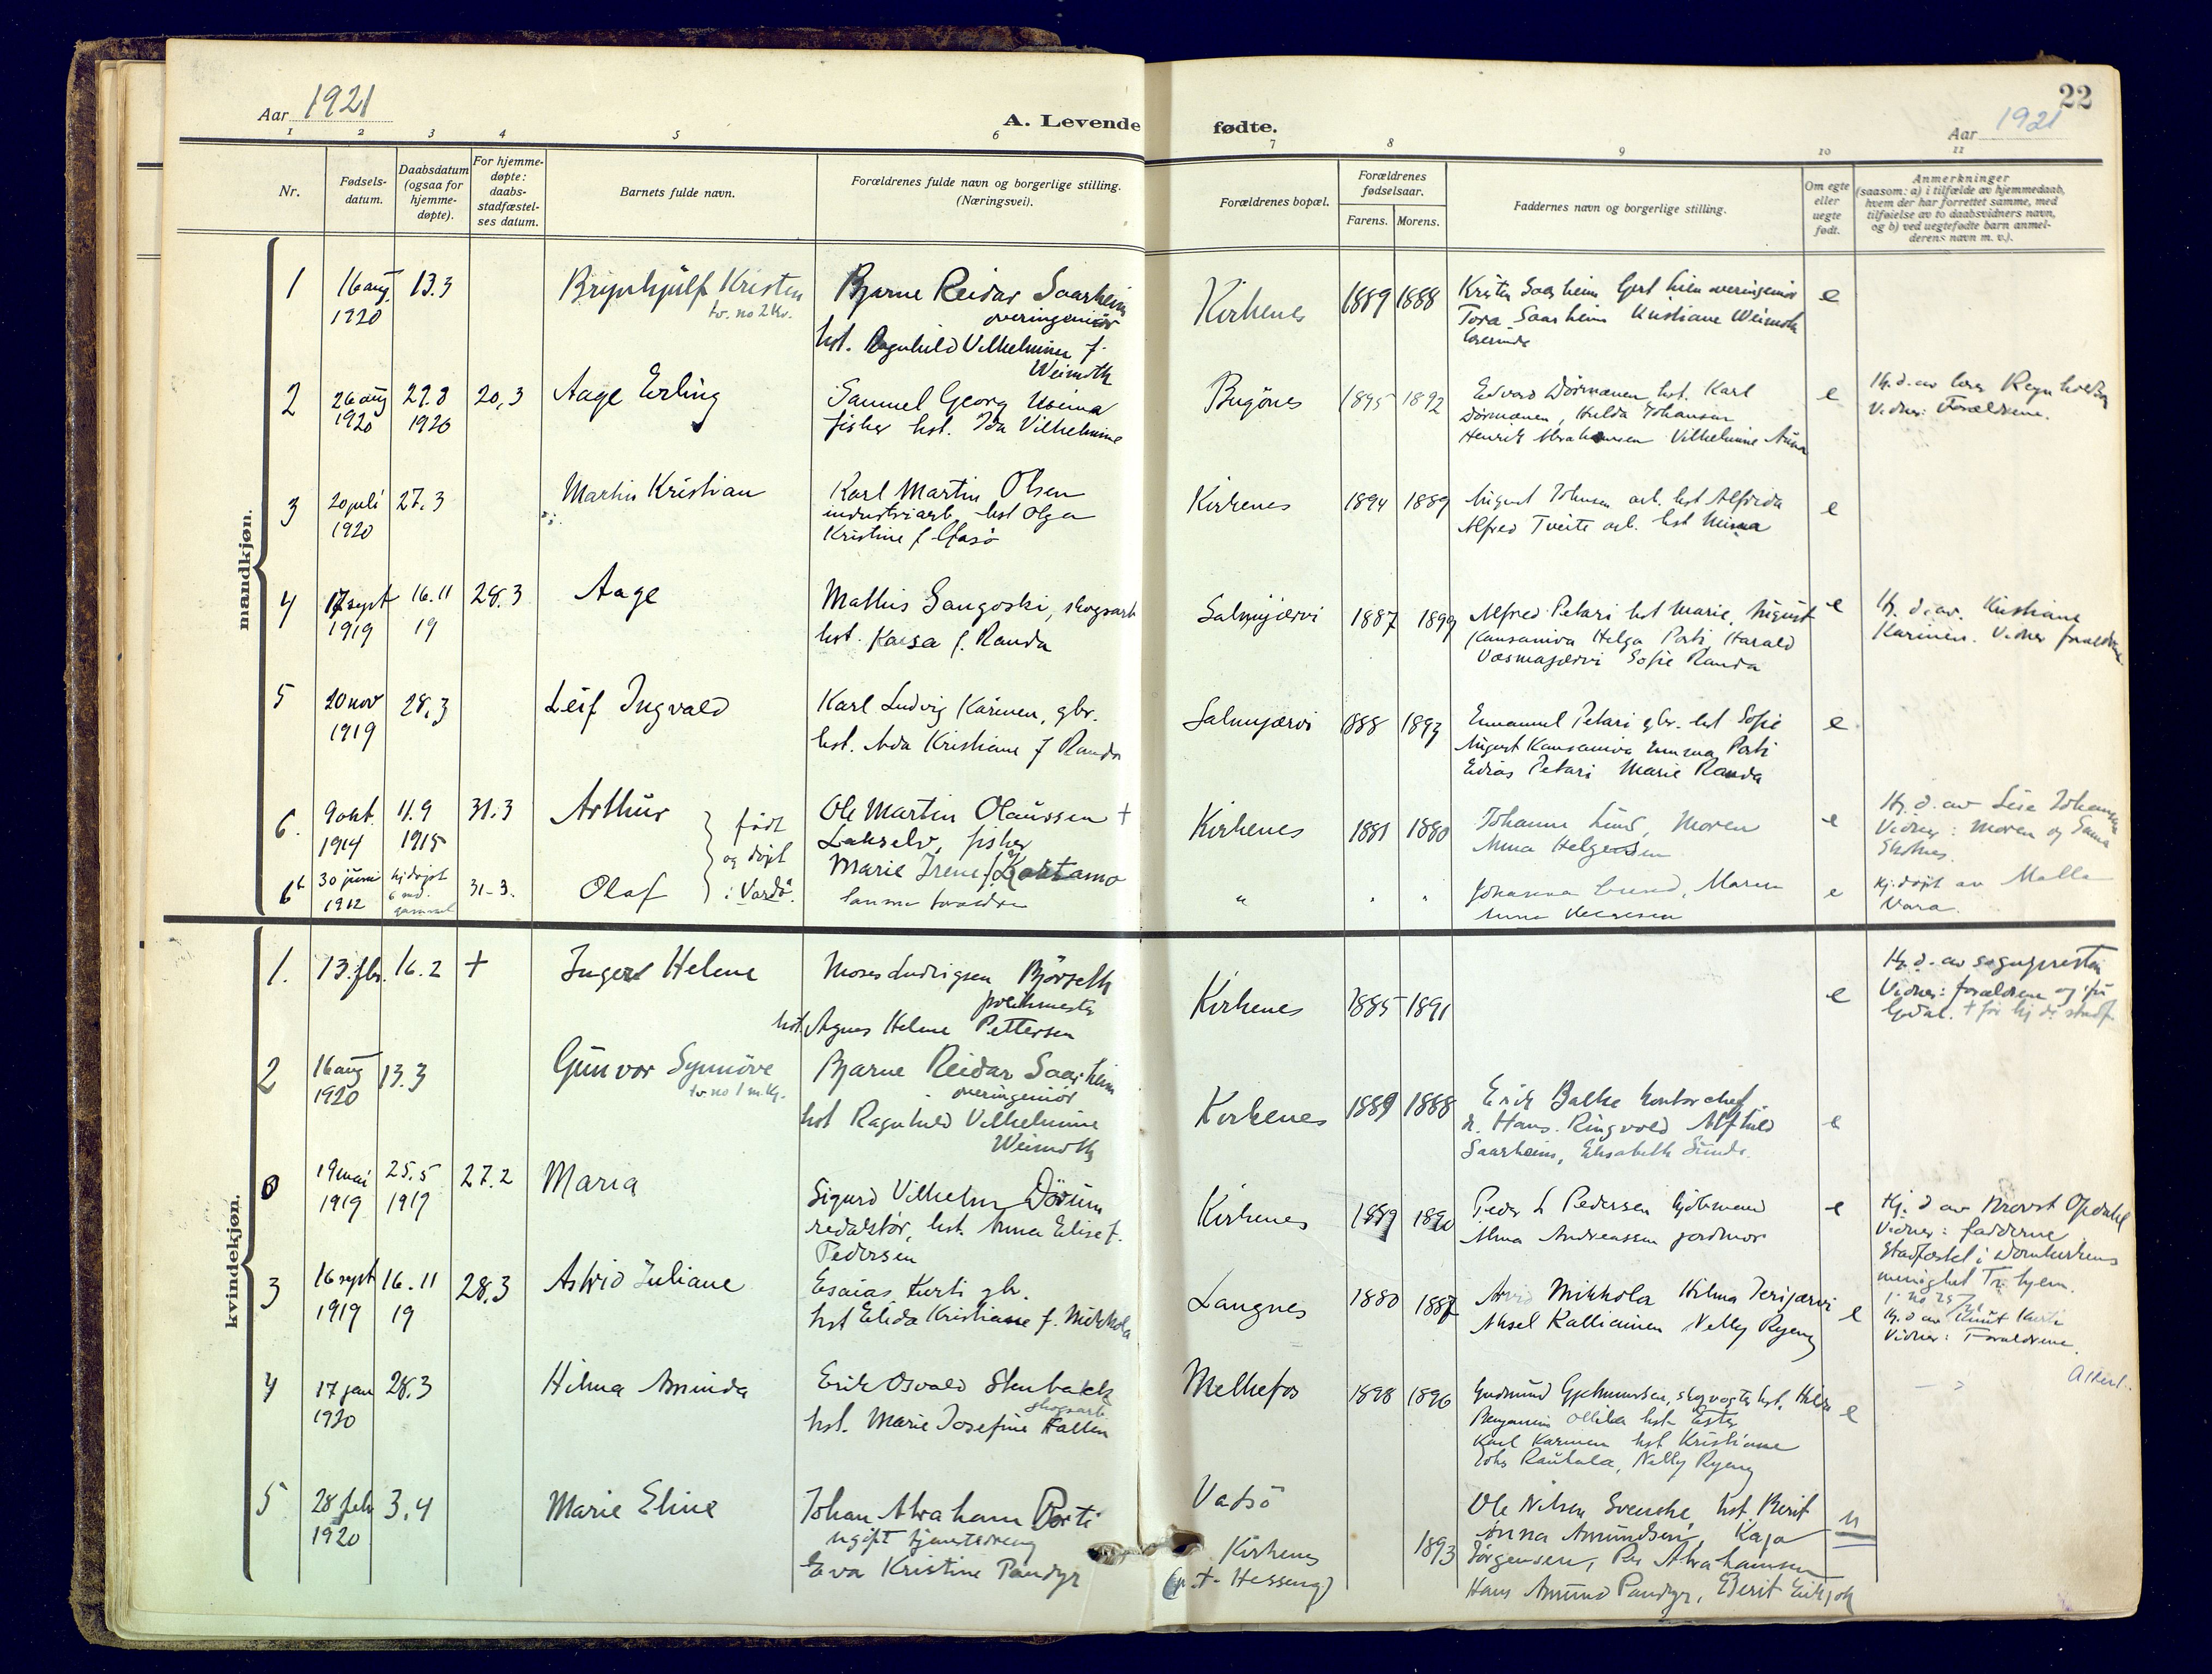 22
Aar 1921
A. Levende fødte.
Aar 1921
1 2 3 4 5 6 7 8 9 10 11
Nr.
Fødselsdatum.
Daabsdatum (ogsaa for hjemmedøpte).
For hjemmedøpte: daabsstadfæstelses datum.
Barnets fulde navn.
Forældrenes fulde navn og borgerlige stilling. (Næringsvei).
Forældrenes bopæl.
Forældrenes fødselsaar.
Farens. Morens.
Faddernes navn og borgerlige stilling.
Om egte eller uegte født.
Anmerkninger
(saasom: a) i tilfælde av hjemmedaab,
hvem der har forrettet samme, med
tilføielse av to daabsvidners navn,
og b) ved uegtefødte barn anmelderens navn m. v.).
mandkjøn.
1 16 aug 1920 13.3 Brynhjulf Kristen
tv. no 2 kv.
Bjarne Reidar Saarheim
overingeniør
hst. Ragnhild Vilhelmine f.
Weimoth
Kirkenes 1889 1888
Kristen Saarheim Gert Lien overingeniør
Tora Saarheim Kristiane Weimoth
lærerinde
e
2 26 aug 1920 29.8 1920 20,3 Aage Erling
Samuel Georg Useima
fisker hst. Ida Vilhelmine
Bugönes 1895 1892
Edvard Dörmænen hst. Karl
Dörmænen, Hilda Johansen
Henrik Abrahamsen Vilhelmine Anna
e
Hj. d. av lærer Reynholdsen
Vidner: Forældrene.
3 20 juli 1920 27.3 Martin Kristian
Karl Martin Olsen
industriarb. hst Olga
Kristine f.
Kirkenes 1894 1889
August Johnsen arb. hst Alfrida
Alfred Tveite arb. hst Mina
e
4 17 sept 1919 16.11 19 28.3 Aage
Mathis Sangoski, skogsarb
hst. Kaisa f. Randa
Salmijærvi 1887 1899
Alfred Petari hst Marie, August
Kansaniva Helga Porti Harald
Vasmajærvi Sofie Randa
e
Hj. d. av. Kristiane
Karinen. Vidner forældrene
5 20 nov 1919 28,3 Leif Ingvald
Karl Ludvig Karinen, gbr.
hst. Ada Kristiane f Randa
Salmijærvi 1888 1893
Emanuel Petari gbr. hst Sofie
August Kansaniva Emma Porti
Edias Petari Marie Randa
e
6. 9 okt. 1914 11.9 1915 31.3 Arthur
født og døpt i Vardö.
Ole Martin Olaussen +
Lakselv, fisker
Marie Irene f. Kartamo
Kirkenes 1881 1880
Johanne Lund, Moren
Anna Helgesen
e
Hj. d. av Lise Johansen
Vidner: Moren og Sanna
6b 30 juni 1912 hj. døpt 6 md. gammel 31-3. Olaf
samme forældre
" " "
Johanna Lund, Moren
Anna Helgesen
e
Hj. døpt av Malla
Vara.
kvindekjøn.
1. 13. fbr. 16.2 + Inger Helene
Moses Ludvigsen Björseth
politimester
hst. Agnes Helene Pettersen
Kirkenes 1885 1891
e
Hj. d. av sognepresten
Vidner: forældrene og fru
+ før hj. d. stadf.
2 16 aug 1920 13.3 Gunvor Synnöve
tv. no 1 m.kj.
Bjarne Reidar Saarheim
overingeniör
hst Ragnhild Vilhelmine
Weimoth
Kirkenes 1889 1888
Erik Balke kontorchef
d. Hans. Ringvold Alfhild
Saarheim, Elisabeth Sunde.
e
0 19 mai 1919 25.5 1919 27.2 Maria
Sigurd Vilhelm Dörum
redaktør, hst. Anna Elise f.
Pedersen
Kirkenes 1889 1890
Peder L Pedersen kjöbmand
Alma Andreassen jordmor
e
Hj. d av Provst Opdahl
Vidner: fadderne
Stadfæstet i Domkirkens
menighet Tr.hjem.
3 16 sept 1919 16.11 19 28,3 Astrid Juliane
Esaias Kurti gbr.
hst Elida Kristiane f. Mikkola
Langnes 1880 1887
Arvid Mikkola Hilma Terijærvi
Aksel Kalliainen Nelly Ryeng
e
Hj. d av Knut Kurti
Vidner: Forældrene.
4 17 jan 1920 28.3 Hilma Aminda
Erik Osvald Stenbakk
skogsarb
hst. Marie Josefine Hallin
Melkefos 1898 1896
Gudmund Gjetmundsen, skogvogter hst. Hilda
Benjamin Ollila hst Ester
Karl Karinen hst Kristiane
Johs Rautiala, Nelly Ryeng
e
5 28 feb 1920 3.4 Marie Eline
Johan Abraham Porti
ugift tjenestedreng
Eva Kristine Pandyr
Vadsö
Kirkenes
(p. t. Hesseng)
1893
Ole Nilsen Svenske, hst. Berit
Anna Amundsen, Kaja
Jørgensen, Per Abrahamsen
Hans Amund Pandyr, Berit
u